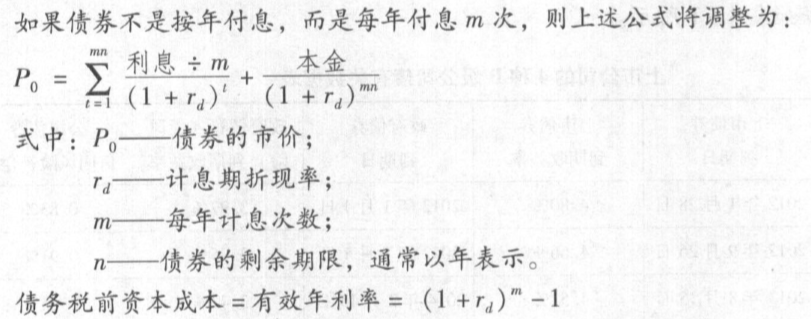 如果债券不是按年付息，而是每年付息 m 次，则上述公式将调整为：
P₀ = ∑_{t=1}^{mn} 利息÷m / (1 + r_d)^t + 本金 / (1 + r_d)^{mn}
式中：P₀——债券的市价；
r_d——计息期折现率；
m——每年计息次数；
n——债券的剩余期限，通常以年表示。
债务税前资本成本 = 有效年利率 = (1+r_d)^m - 1